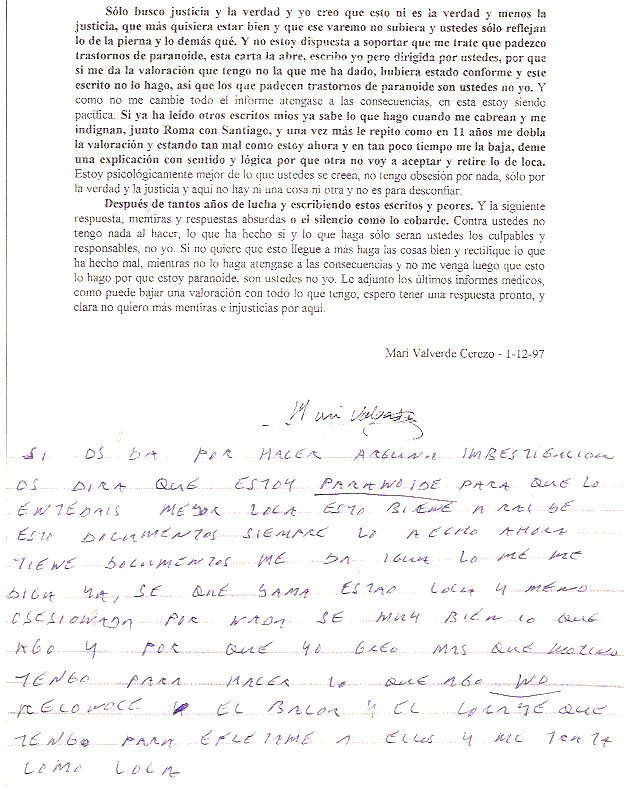 Sólo busco justicia y la verdad y yo creo que esto ni es la verdad y menos la
justicia, que más quisiera estar bien y que ese varemo no subiera y ustedes sólo reflejan
lo de la pierna y lo demás qué. Y no estoy dispuesta a soportar que me trate que padezco
trastornos de paranoide, esta carta la abre, escribo yo pero dirigida por ustedes, por que
si me da la valoración que tengo no la que me ha dado, hubiera estado conforme y este
escrito no lo hago, así que los que padecen trastornos de paranoide son ustedes no yo. Y
como no me cambie todo el informe atengase a las consecuencias, en esta estoy siendo
pacífica. Si ya ha leído otros escritos míos ya sabe lo que hago cuando me cabrean y me
indignan, junto Roma con Santiago, y una vez más le repito como en 11 años me dobla
la valoración y estando tan mal como estoy ahora y en tan poco tiempo me la baja, deme
una explicación con sentido y lógica por que otra no voy a aceptar y retire lo de loca.
Estoy psicológicamente mejor de lo que ustedes se creen, no tengo obsesión por nada, sólo por
la verdad y la justicia y aquí no hay ni una cosa ni otra y no es para desconfiar.
Después de tantos años de lucha y escribiendo estos escritos y peores. Y la siguiente
respuesta, mentiras y respuestas absurdas o el silencio como lo cobarde. Contra ustedes no
tengo nada al hacer, lo que ha hecho si y lo que haga sólo serán ustedes los culpables y
responsables, no yo. Si no quiere que esto llegue a más haga las cosas bien y rectifique lo que
ha hecho mal, mientras no lo haga atengase a las consecuencias y no me venga luego que esto
lo hago por que estoy paranoide, son ustedes no yo. Le adjunto los últimos informes médicos,
como puede bajar una valoración con todo lo que tengo, espero tener una respuesta pronto, y
clara no quiero más mentiras e injusticias por aquí.
Mari Valverde Cerezo - 1-12-97
Mari Valverde
SI OS DA POR HACER ARGUNA IMBESTIGACION
OS DIRA QUE ESTOY PARANOIDE PARA QUE LO
ENTEDAIS MEJOR LOCA ESTO BIENE A RAS DE
ESTO DOCUMENTOS SIEMPRE LO AECHO AHORA
TIENE DOCUMENTOS ME DA IGUA LO ME ME
DIGA YA, SE QUE JAMA ESTAO LOCA Y MENO
OSESIONADA POR NADA SE MUY BIEN LO QUE
AGO Y POR QUE YO CREO MAS QUE MOTIVO
TENGO PARA HACER LO QUE AGO NO
RECONOCE EL BALOR Y EL CORAJE QUE
TENGO PARA A ELLOS Y ME TRATA
COMO LOCA